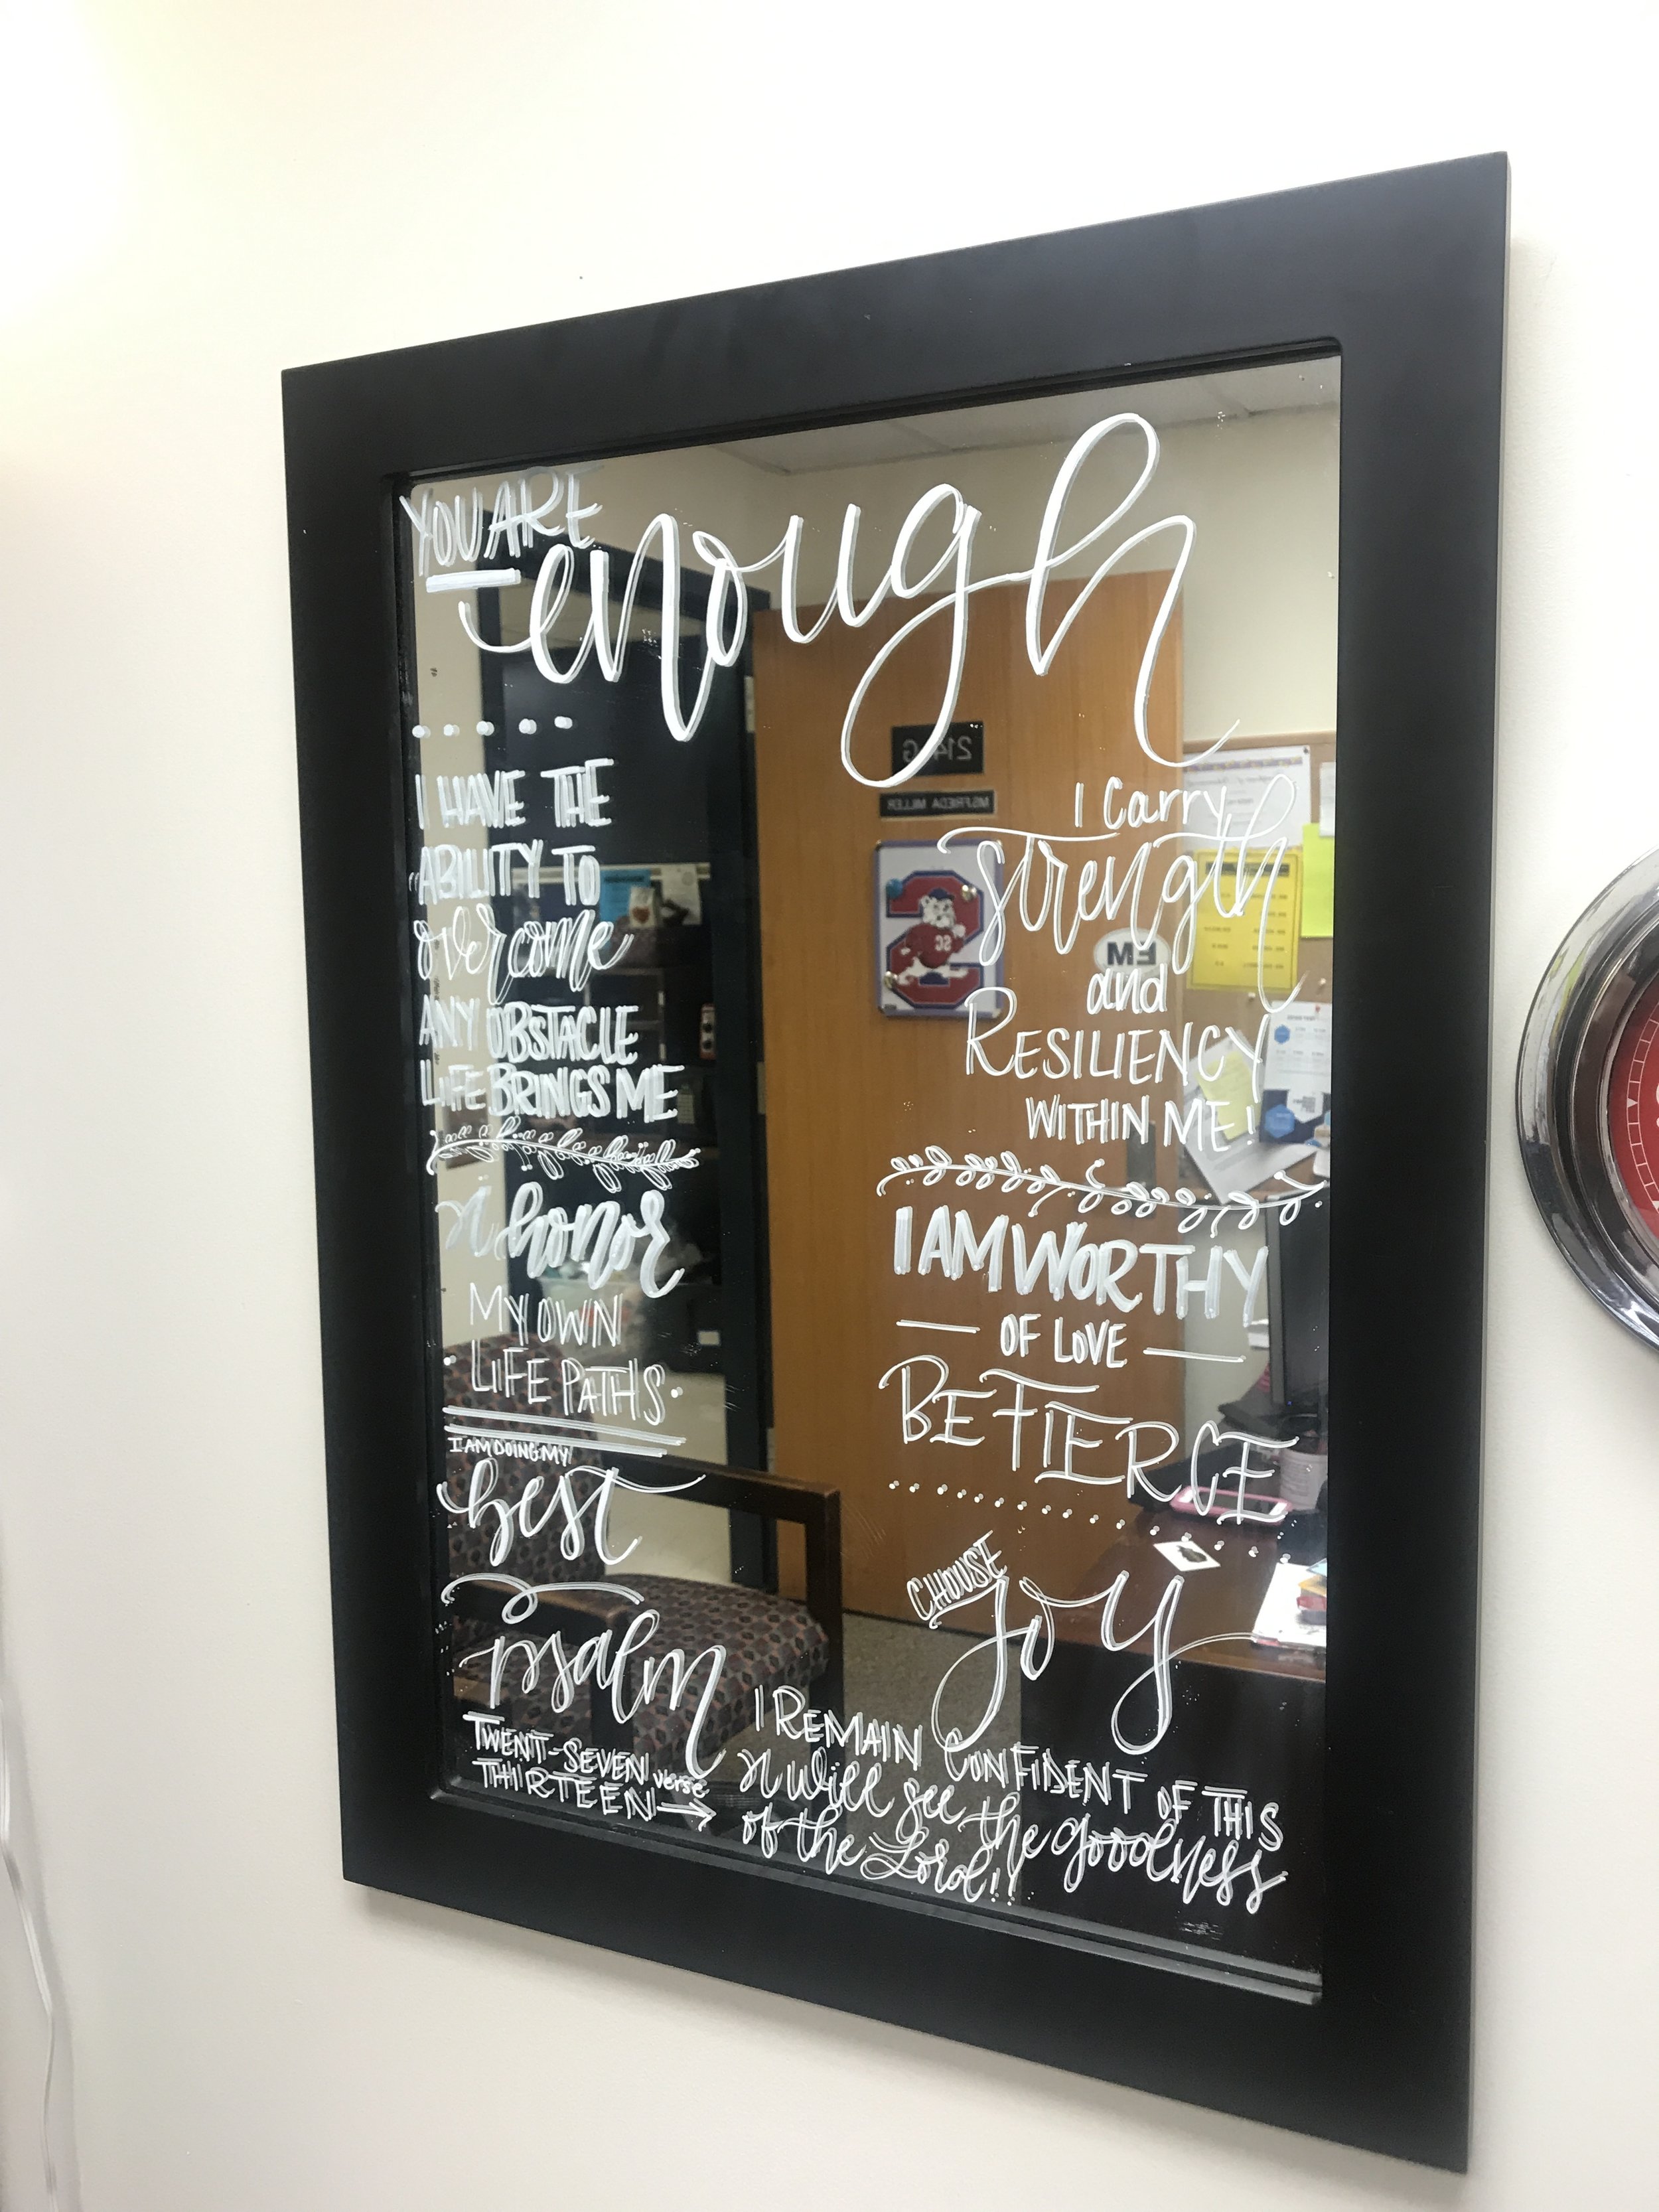 YOU ARE
enough
I HAVE THE
ABILITY TO
overcome
ANY OBSTACLE
LIFE BRINGS ME
I honor
MY OWN
LIFE PATHS
I AM DOING MY
best
psalm
TWENT-SEVEN
verse
THIRTEEN
I carry
strength
and
RESILIENCY
WITHIN ME!
I AM WORTHY
OF LOVE
BE FIERCE
CHOOSE
joy
I REMAIN CONFIDENT OF THIS
I will see the goodness
of the Lord!!
214 G
MS FRIEDA MILLER
SC
FM